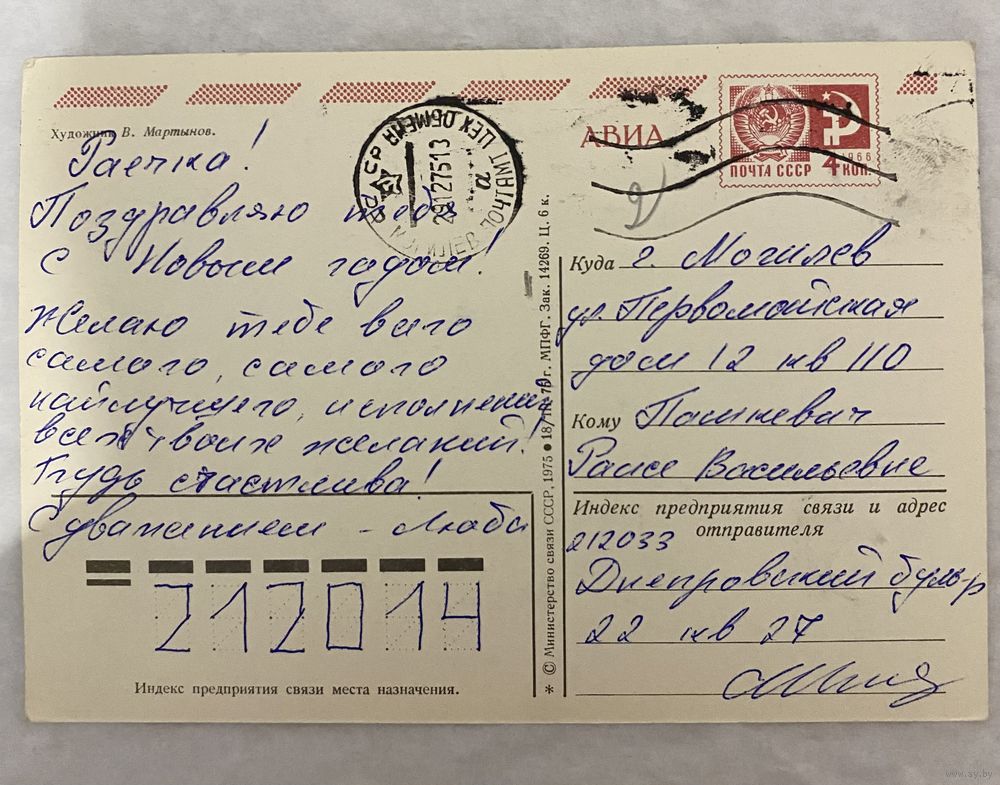 Художник В. Мартынов.
АВИА
ПОЧТА СССР
4 КОП.
1966
МОГИЛЕВ ПОЧТАМТ ЦЕХ ОБМЕН
291275 13
а
Раечка!
Поздравляю тебя
с Новым годом!
Желаю тебе всего
самого, самого
найлучшего, исполнения
всех твоих желаний!
Будь счастлива!
С уважением – Люба
212014
Индекс предприятия связи места назначения.
* © Министерство связи СССР, 1975 ● 18/III-75 г. МПФГ. Зак. 14269. Ц. 6 к.
Куда г. Могилев
ул. Первомайская
дом 12 кв 110
Кому Пашкевич
Раисе Васильевне
Индекс предприятия связи и адрес
отправителя
212033
Днепровский буль-р
22 кв 27
www.ay.by